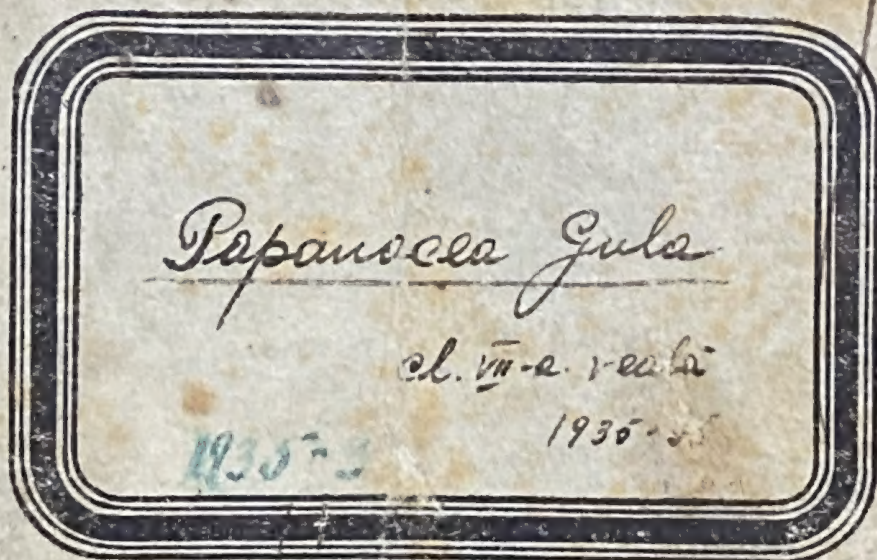 Papanocea Gula
cl. VII-a. reală
1935-
1935-3